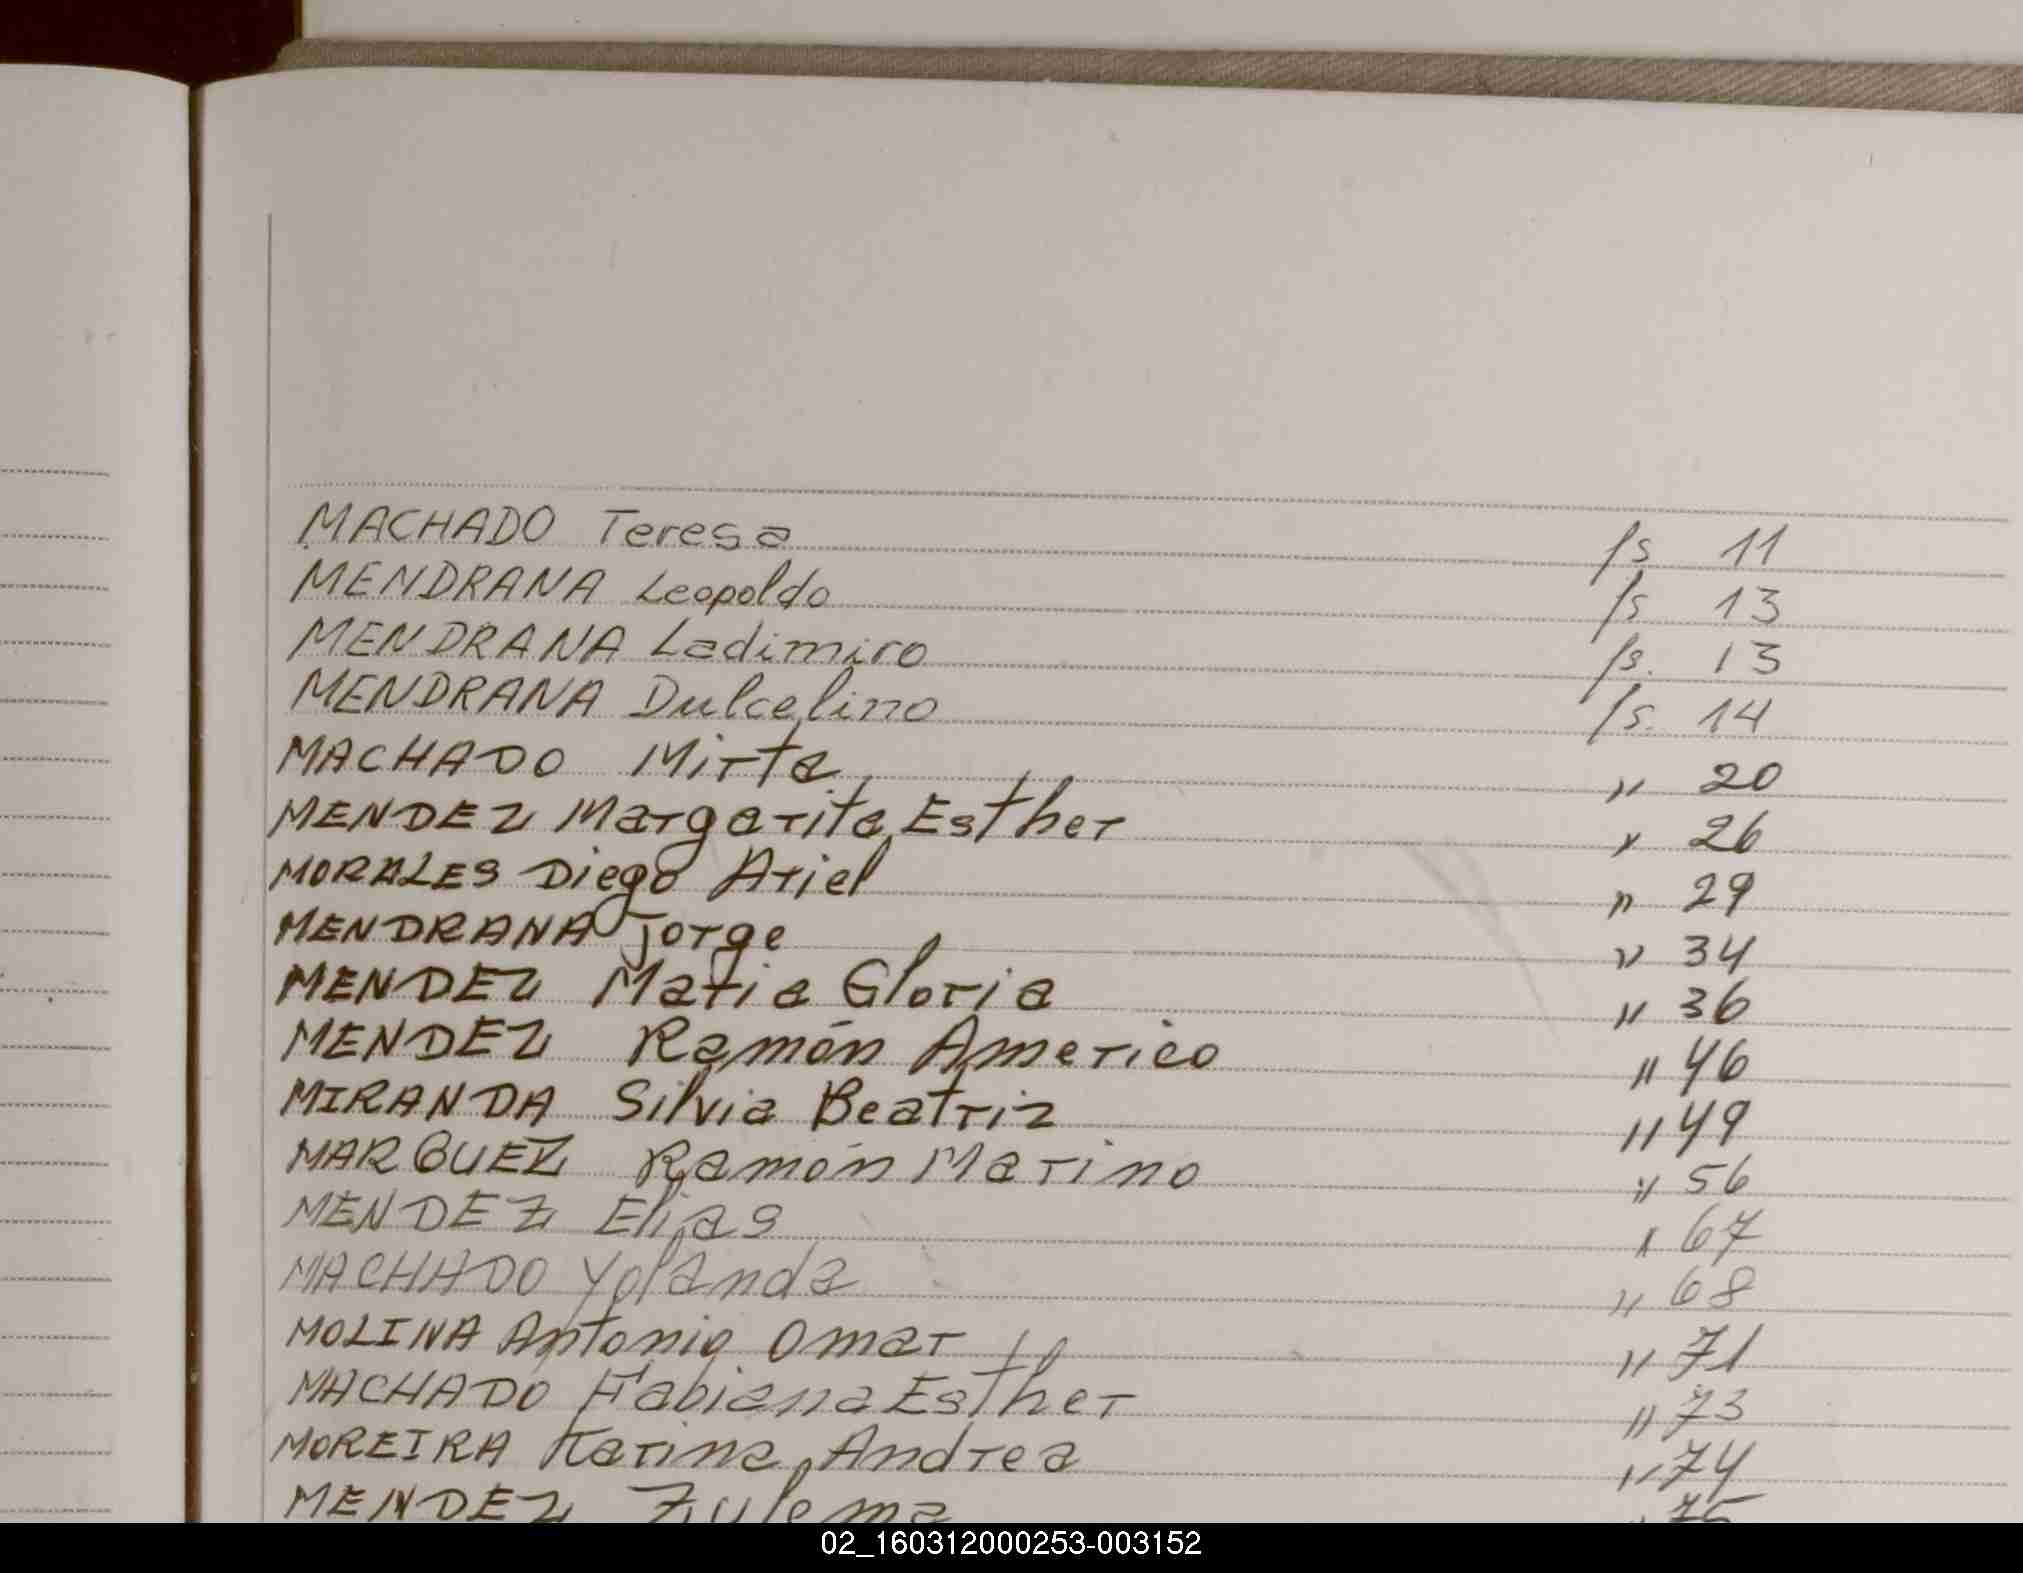 MACHADO Teresa fs 11
MENDRANA Leopoldo fs 13
MENDRANA Ladimiro fs. 13
MENDRANA Dulcelino fs. 14
MACHADO Mirta " 20
MENDEZ Margarita Esther " 26
MORALES Diego Ariel " 29
MENDRANA Jorge " 34
MENDEZ Maria Gloria " 36
MENDEZ Ramón Americo " 46
MIRANDA Silvia Beatriz " 49
MARQUEZ Ramón Marino " 56
MENDEZ Elias " 67
MACHADO Yolanda " 68
MOLINA Antonio Omar " 71
MACHADO Fabiana Esther " 73
MOREIRA Karina Andrea " 74
MENDEZ Zulema " 75
02_160312000253-003152